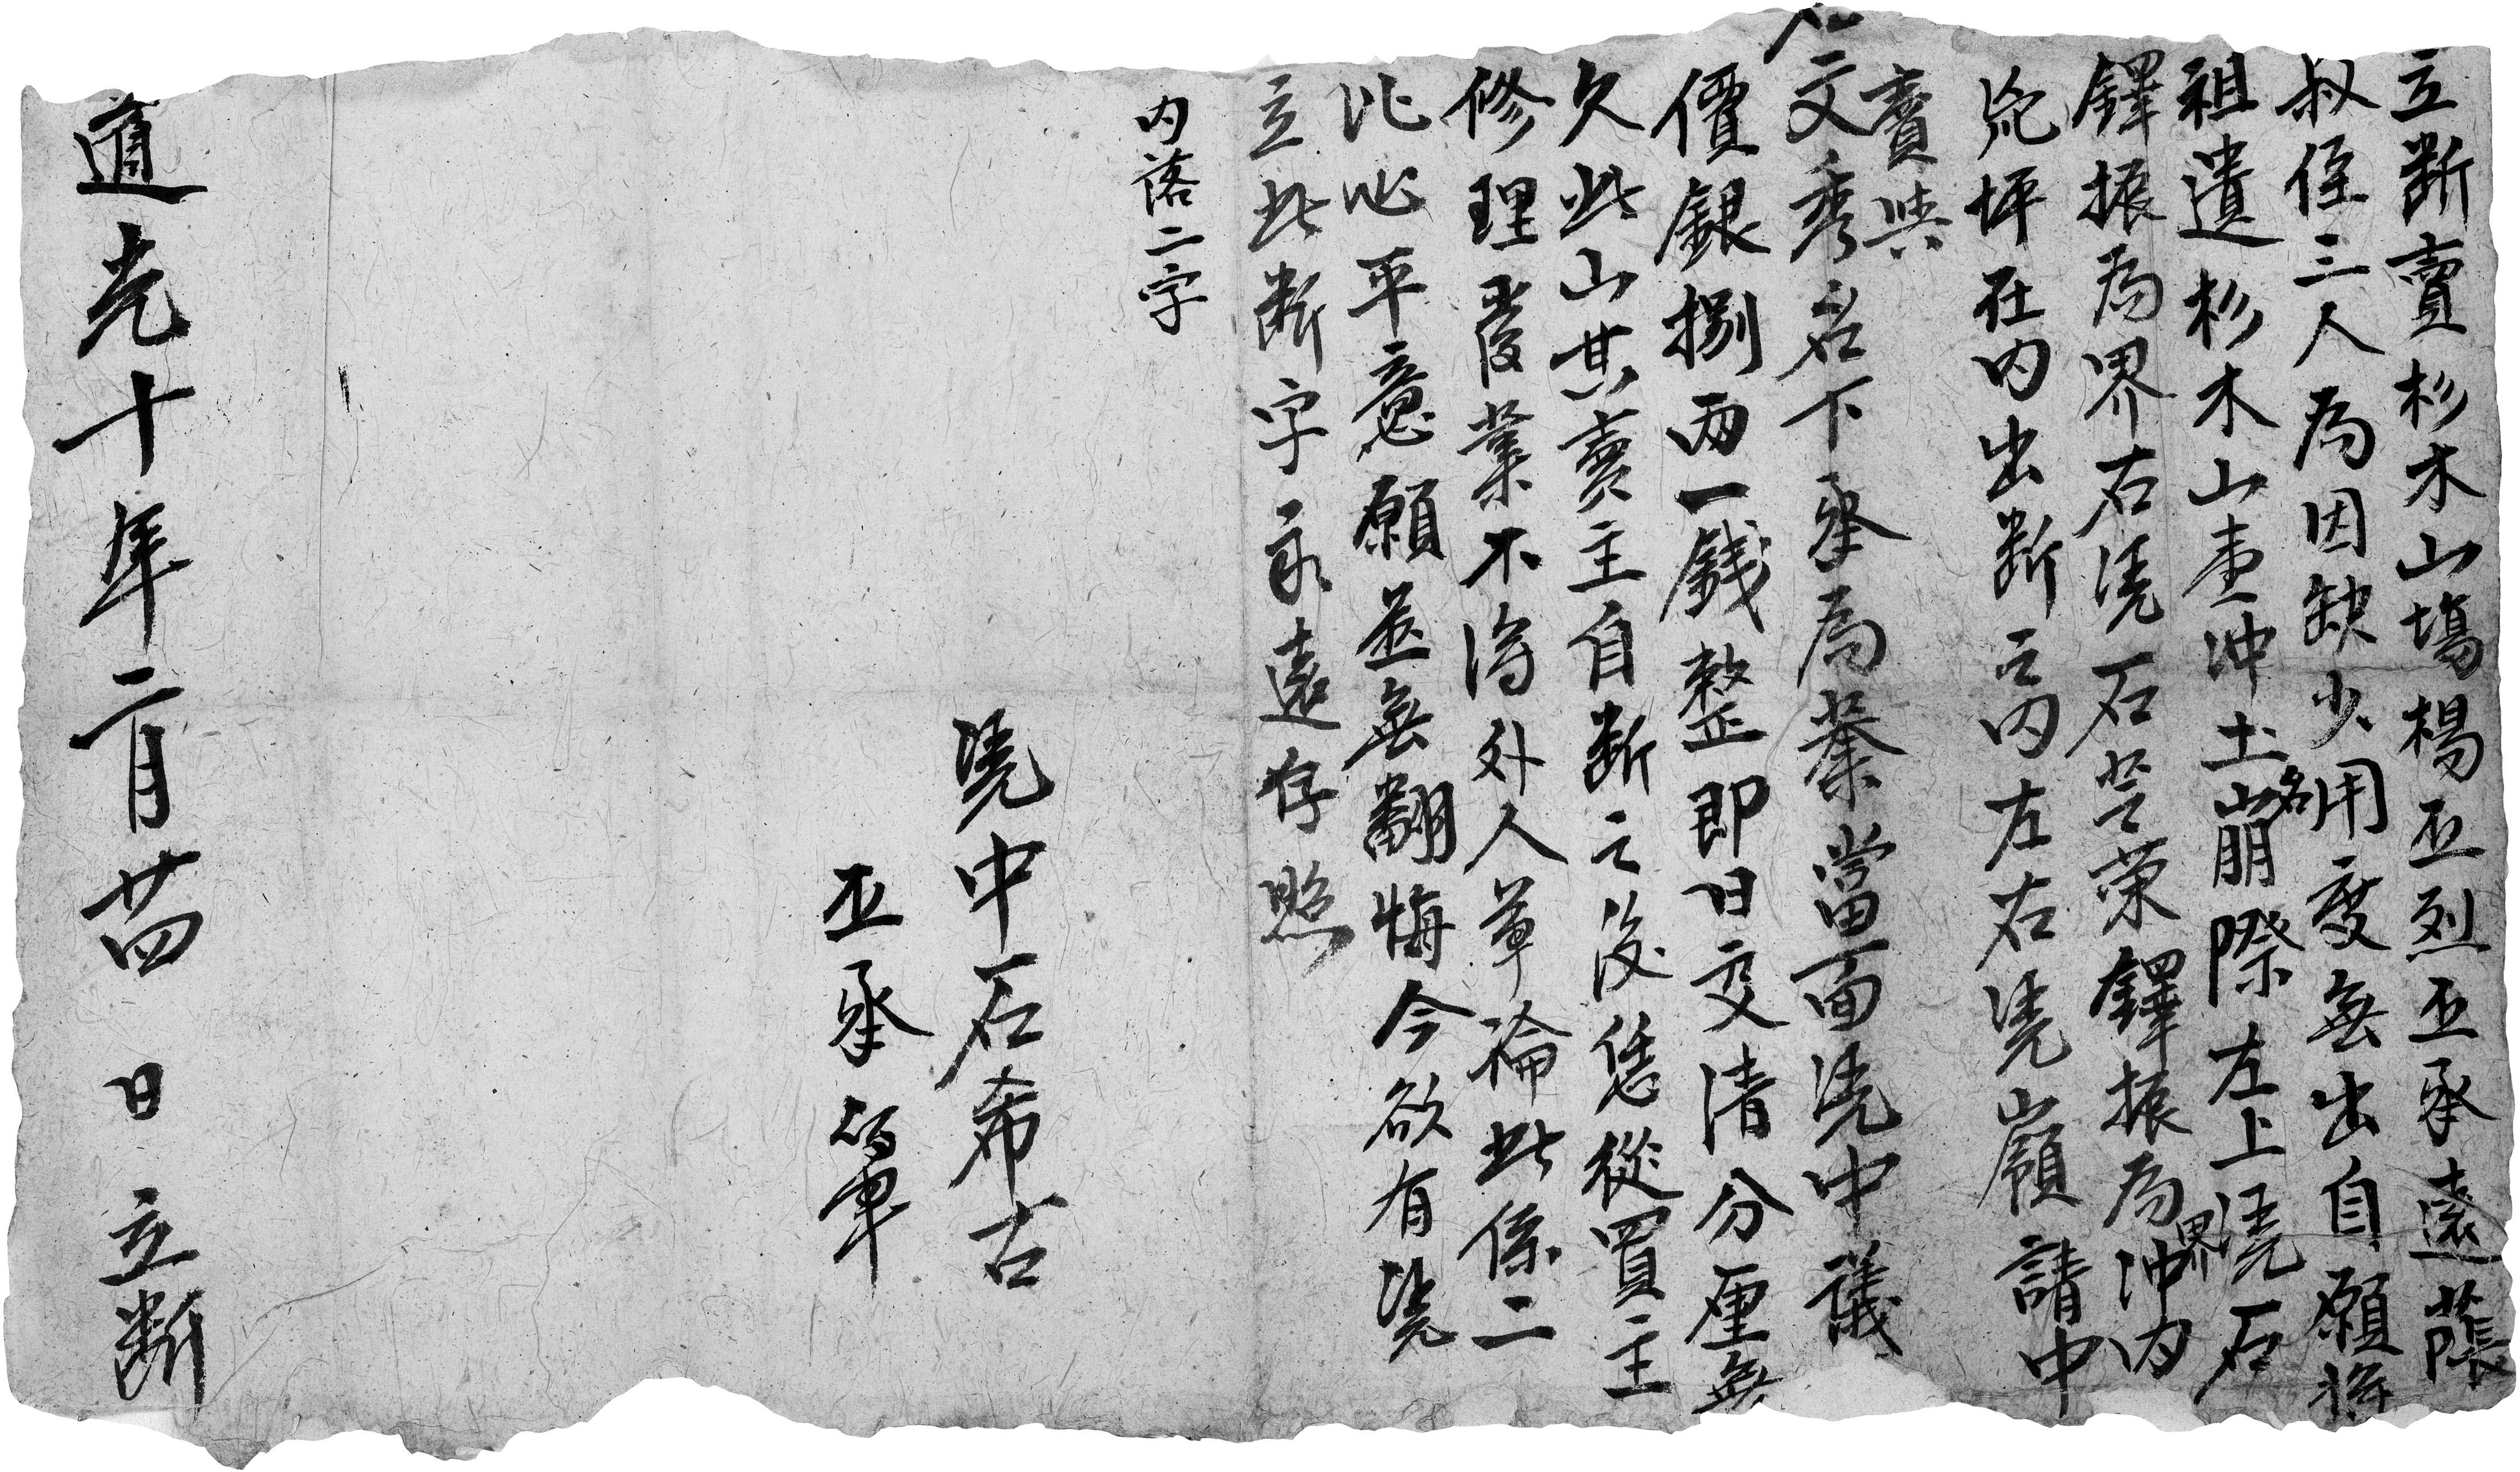 立断賣杉木山塲楊丕烈丕承遠蔭
叔侄三人為因缺少用度無出自願將
祖遺杉木山壹冲土名崩際左上凴石
鐸振為界右凴石昱荣鐸振為界冲内
荒坪在内出断之内左右凴嶺請中
賣與
石文秀名下承為業當面凴中議
價銀捌両一錢整即日交清分厘無
欠此山其賣主自断之後恁從買主
修理管業不淂外人争論此係二
比心平意願並無翻悔今欲有凴
立此断字永遠存照
内落二字
凴中石希古
丕承筆
道光十年二月廿四日立断